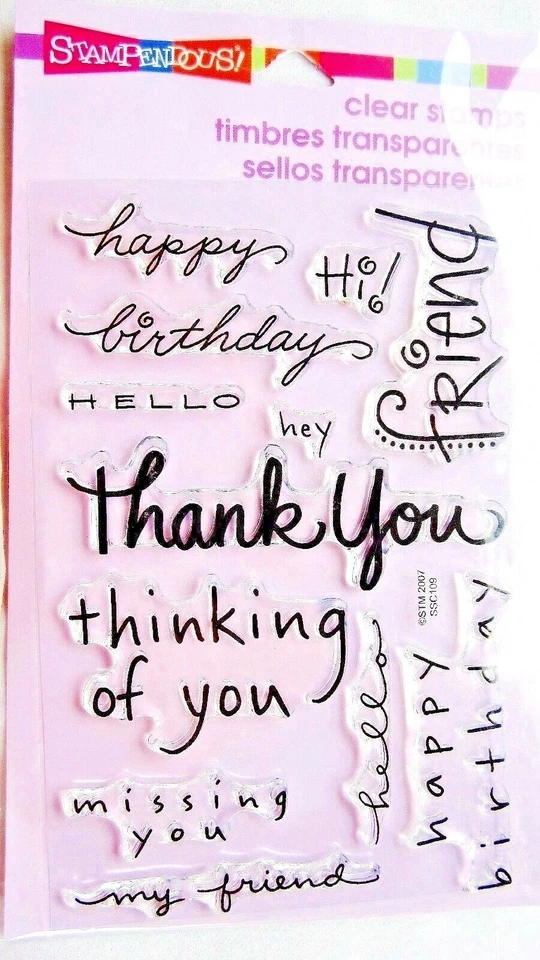 STAMPENDOUS!
clear stamps
timbres transparentes
sellos transparentes
happy
Hi!
friend
birthday
HELLO
hey
Thank You
©STM 2007
SSC109
thinking
of you
hello
happy
birthday
missing
you
my friend